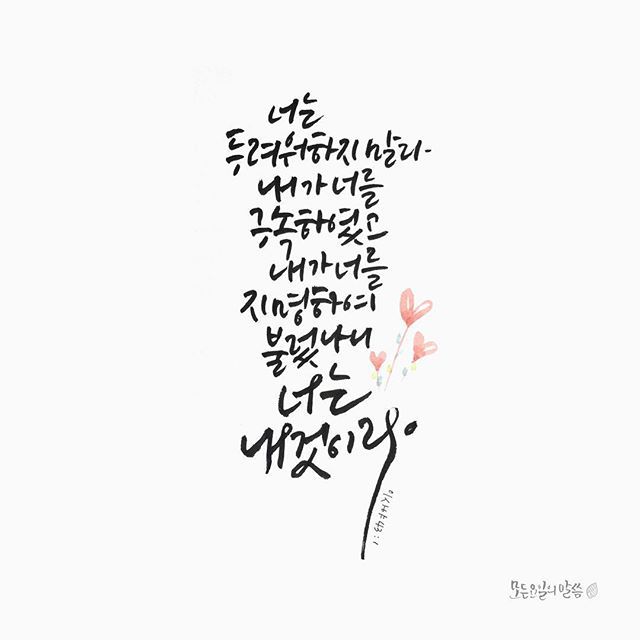 너는
두려워하지 말라
내가 너를
구속하였고
내가 너를
지명하여
불렀나니
너는
내 것이라.
이사야 43:1
모든요일의말씀